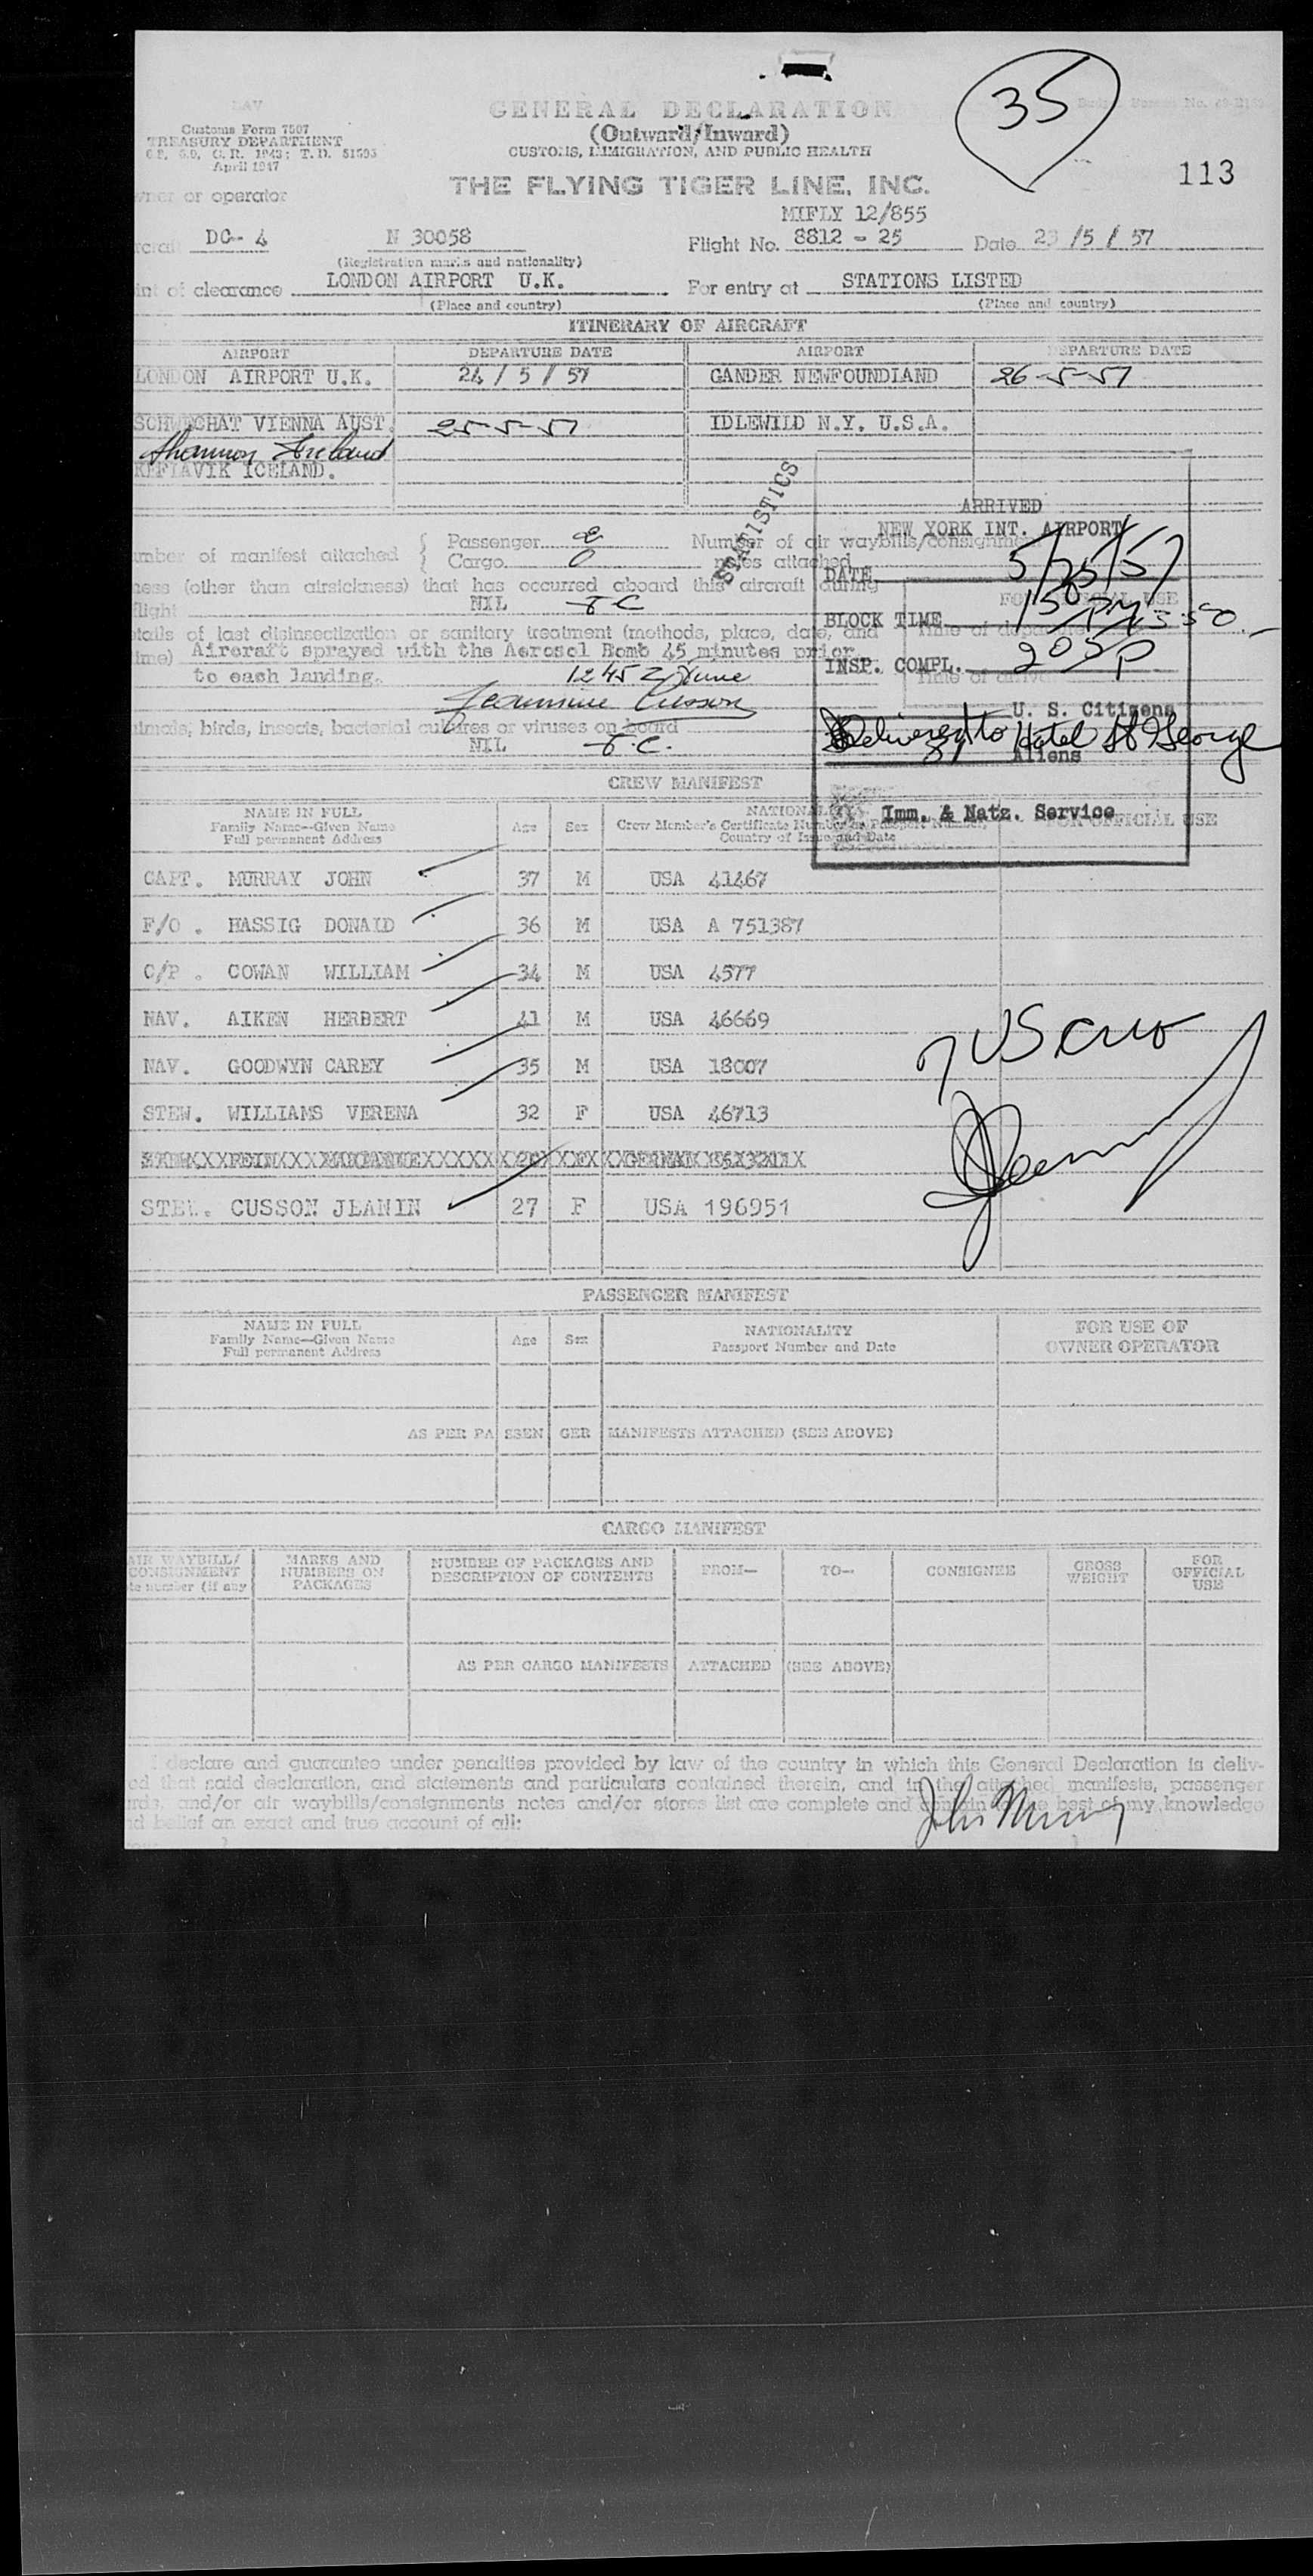 35
Customs Form 7507
TREASURY DEPARTMENT
April 1947
GENERAL DECLARATION
(Outward/Inward)
CUSTOMS, IMMIGRATION, AND PUBLIC HEALTH
THE FLYING TIGER LINE, INC.
113
or operator
MIFLY 12/855
DC-4 N 30058 Flight No. 8812 - 25 Date 23/5/57
(Registration marks and nationality)
of clearance LONDON AIRPORT U.K. For entry at STATIONS LISTED
(Place and country) (Place and country)
ITINERARY OF AIRCRAFT
AIRPORT DEPARTURE DATE AIRPORT DEPARTURE DATE
LONDON AIRPORT U.K. 24/5/57 GANDER NEWFOUNDLAND 26-5-57
SCHWECHAT VIENNA AUST. 25-5-57 IDLEWILD N.Y. U.S.A.
Shannon Ireland
KEFLAVIK ICELAND.
STATISTICS
ARRIVED
NEW YORK INT. AIRPORT
of manifest attached { Passenger Number of air waybills/consignment
{ Cargo 0 notes attached
DATE
(other than airsickness) that has occurred aboard this aircraft during
FOR OFFICIAL USE
NIL
BLOCK TIME
of last disinsectization or sanitary treatment (methods, place, date, and
Aircraft sprayed with the Aerosol Bomb 45 minutes prior
INSP. COMPL.
to each landing.
U. S. Citizens
birds, insects, bacterial cultures or viruses on board
Delivered to Hotel St George
NIL
Aliens
CREW MANIFEST
Imm. & Natz. Service
NAME IN FULL
Family Name—Given Name
Full permanent Address
Age Sex
NATIONALITY
Crew Member's Certificate Number or Passport Number,
Country of Issue and Date
FOR OFFICIAL USE
CAPT. MURRAY JOHN 37 M USA 41467
F/O . HASSIG DONALD 36 M USA A 751387
C/P . COWAN WILLIAM 34 M USA 4577
NAV. AIKEN HERBERT 41 M USA 46669
7 US Crew
NAV. GOODWYN CAREY 35 M USA 18007
STEW. WILLIAMS VERENA 32 F USA 46713
STEW. CUSSON JEANIN 27 F USA 196951
PASSENGER MANIFEST
NAME IN FULL
Family Name—Given Name
Full permanent Address
Age Sex
NATIONALITY
Passport Number and Date
FOR USE OF
OWNER OPERATOR
AS PER PASSENGER MANIFESTS ATTACHED (SEE ABOVE)
CARGO MANIFEST
AIR WAYBILL/
CONSIGNMENT
number (if any
MARKS AND
NUMBERS ON
PACKAGES
NUMBER OF PACKAGES AND
DESCRIPTION OF CONTENTS
FROM— TO— CONSIGNEE
GROSS
WEIGHT
FOR
OFFICIAL
USE
AS PER CARGO MANIFESTS ATTACHED (SEE ABOVE)
I declare and guarantee under penalties provided by law of the country in which this General Declaration is deliv-
that said declaration, and statements and particulars contained therein, and in the attached manifests, passenger
and/or air waybills/consignments notes and/or stores list are complete and contain to the best of my knowledge
belief an exact and true account of all:
John Murray